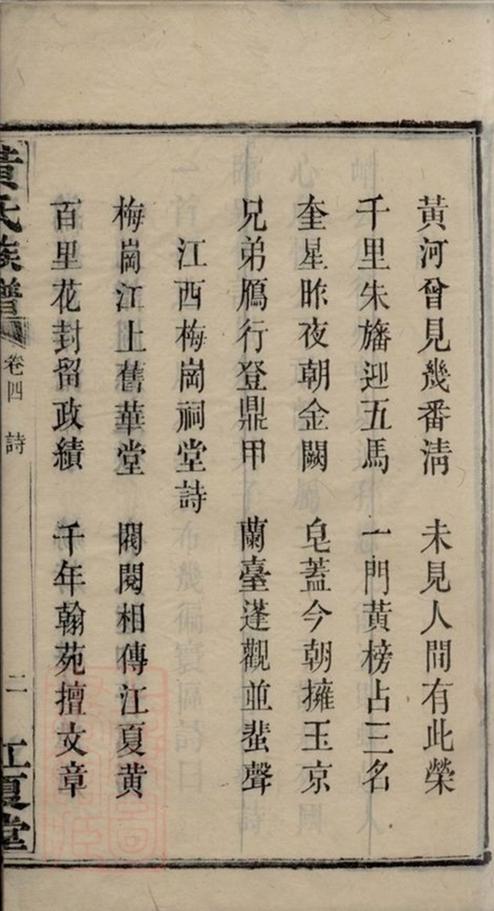 黃河曾見幾番淸　未見人間有此榮
千里朱旛迎五馬　一門黃榜占三名
奎星昨夜朝金闕　皂蓋今朝擁玉京
兄弟鴈行登鼎甲　蘭臺蓬觀並蜚聲
江西梅崗祠堂詩
梅崗江上舊華堂　閥閱相傳江夏黃
百里花封留政績　千年翰苑擅文章
黃氏族譜　卷四　詩　二　江夏堂